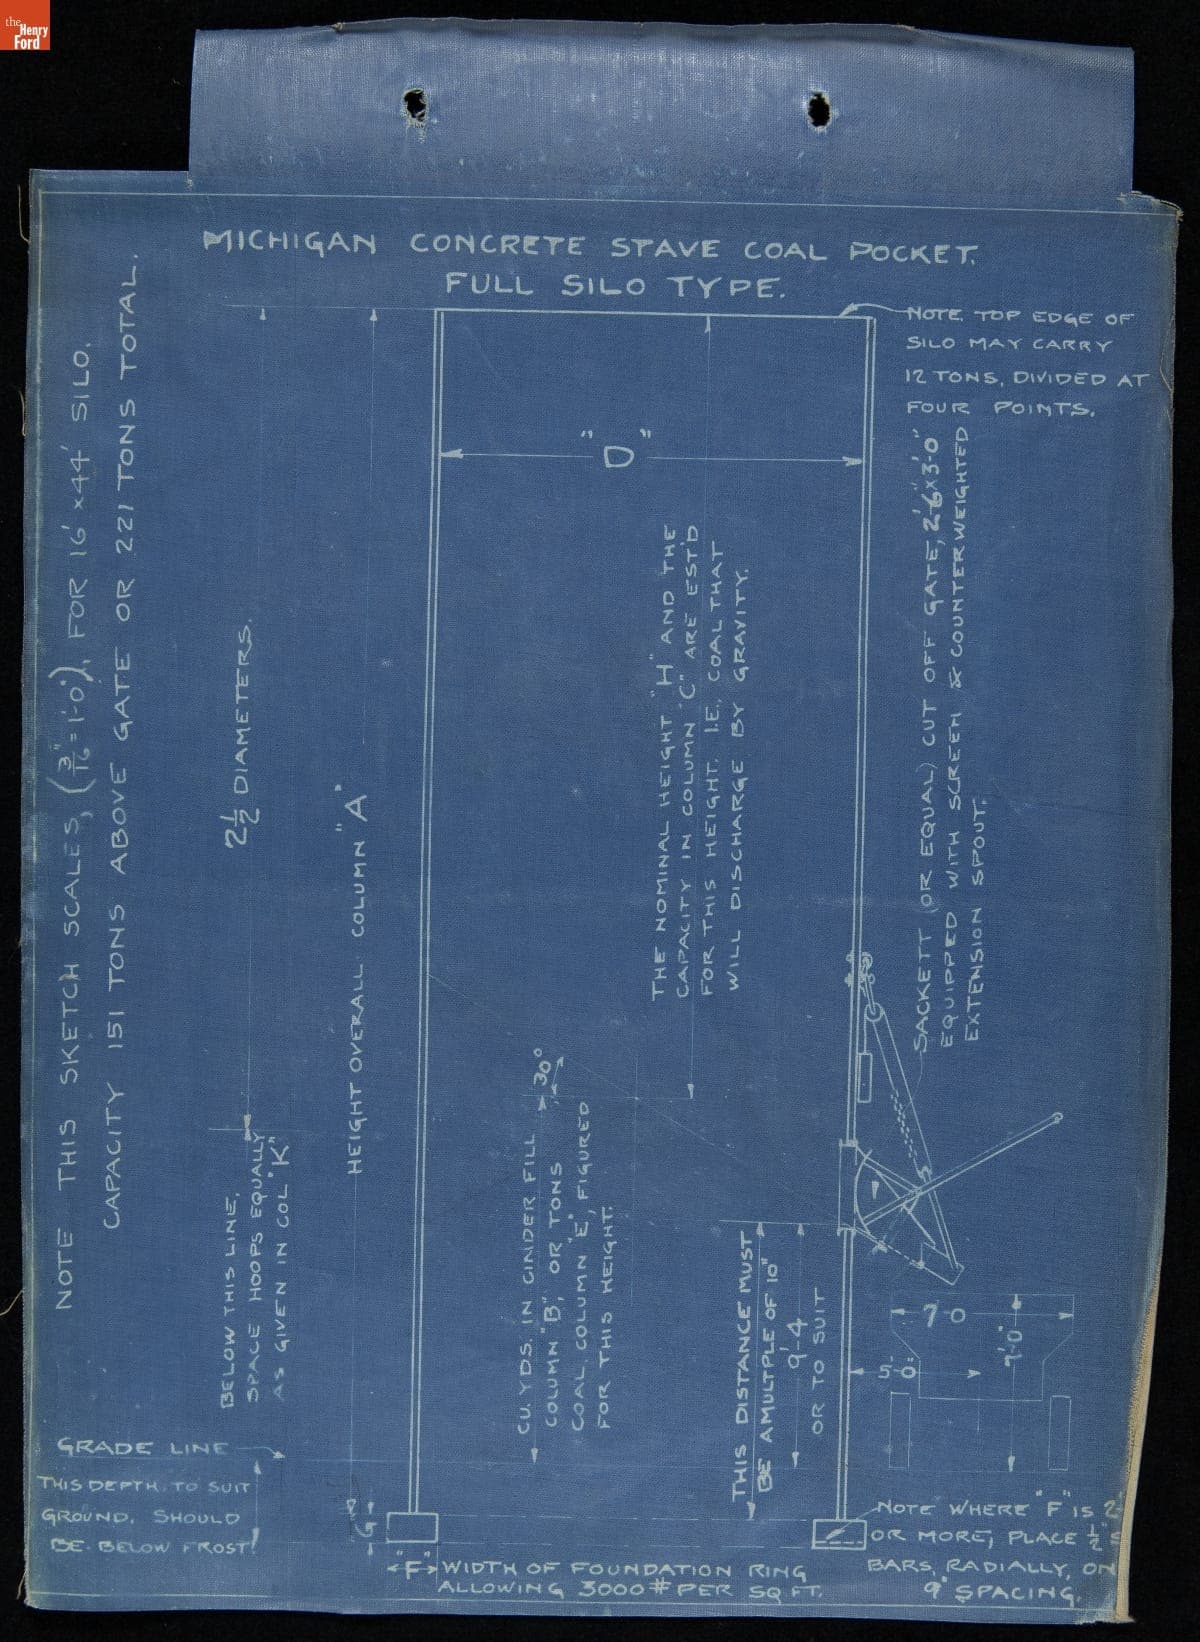 the
Henry
Ford
MICHIGAN CONCRETE STAVE COAL POCKET.
FULL SILO TYPE.
NOTE THIS SKETCH SCALES, (3/16"=1'-0"), FOR 16' x 44' SILO.
CAPACITY 151 TONS ABOVE GATE OR 221 TONS TOTAL.
NOTE TOP EDGE OF
SILO MAY CARRY
12 TONS, DIVIDED AT
FOUR POINTS.
"D"
2 1/2 DIAMETERS.
HEIGHT OVERALL. COLUMN "A"
THE NOMINAL HEIGHT "H" AND THE
CAPACITY IN COLUMN "C" ARE EST'D
FOR THIS HEIGHT. I.E., COAL THAT
WILL DISCHARGE BY GRAVITY.
SACKETT (OR EQUAL) CUT OFF GATE, 2'-6" x 3'-0"
EQUIPPED WITH SCREEN & COUNTERWEIGHTED
EXTENSION SPOUT.
30°
BELOW THIS LINE,
SPACE HOOPS EQUALLY
AS GIVEN IN COL "K"
CU. YDS. IN CINDER FILL
COLUMN "B", OR TONS
COAL, COLUMN "E", FIGURED
FOR THIS HEIGHT.
THIS DISTANCE MUST
BE A MULTPLE OF 10"
9'-4
OR TO SUIT
7'-0
7'-0"
5'-0"
GRADE LINE
THIS DEPTH TO SUIT
GROUND, SHOULD
BE BELOW FROST.
"G"
"F" WIDTH OF FOUNDATION RING
ALLOWING 3000# PER SQ FT.
NOTE WHERE "F" IS 2'
OR MORE, PLACE 1/2" S
BARS, RADIALLY, ON
9" SPACING.